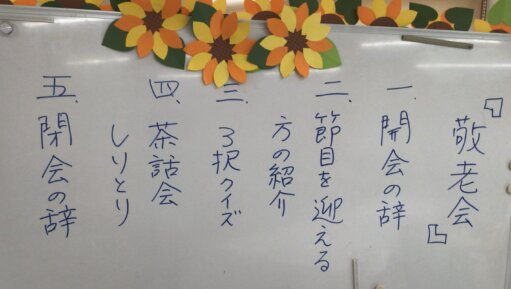 『敬老会』
一.開会の辞
二.節目を迎える
方の紹介
三.3択クイズ
四.茶話会
しりとり
五.閉会の辞